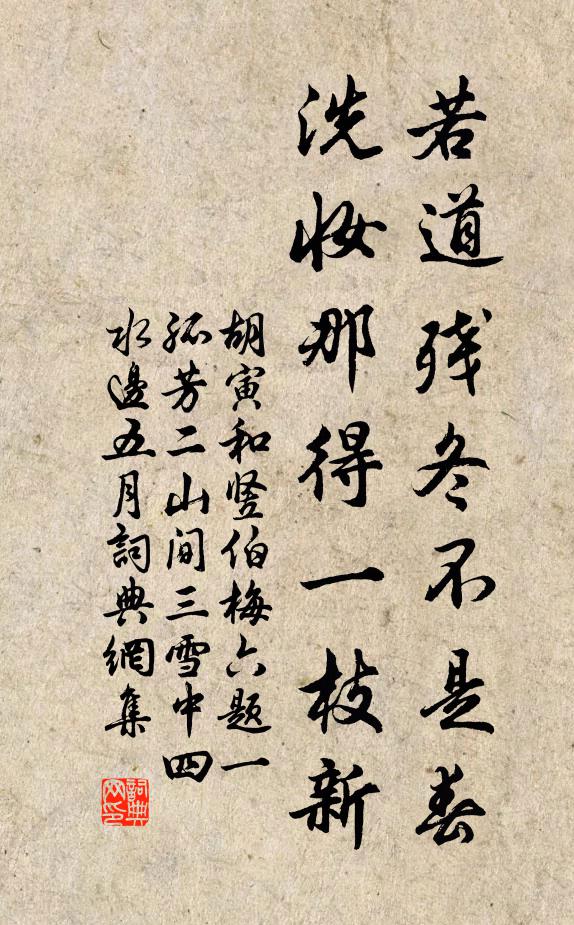 若道残冬不是春
洗妆那得一枝新
胡寅和竖伯梅六题一
孤芳二山间三雪中四
水邊五月詞典網集
詞典网印